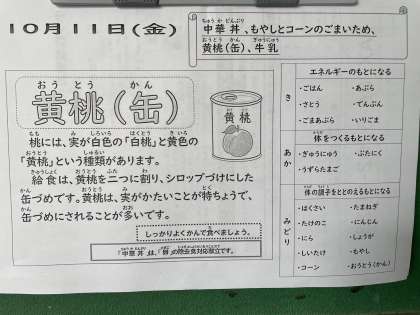 10月11日(金)
中華丼、もやしとコーンのごまいため、
黄桃(缶)、牛乳
黄桃(缶)
黄桃
桃には、実が白色の「白桃」と黄色の
「黄桃」という種類があります。
給食は、黄桃を二つに割り、シロップづけにした
缶づめです。黄桃は、実がかたいことが特ちょうで、
缶づめにされることが多いです。
しっかりよくかんで食べましょう。
「中華丼」は、「卵」の除去食対応献立です。
エネルギーのもとになる
き
・ごはん ・あぶら
・さとう ・でんぷん
・ごまあぶら ・いりごま
体をつくるもとになる
あか
・ぎゅうにゅう ・ぶたにく
・うずらたまご
体の調子をととのえるもとになる
みどり
・はくさい ・たまねぎ
・たけのこ ・にんじん
・にら ・しょうが
・しいたけ ・もやし
・コーン ・おうとう(かん)